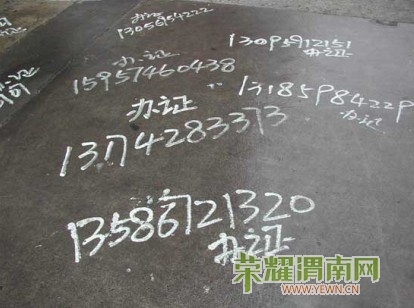 办证
13056154222
13095912151
办证
办证
15957460438
13185984229
办证
办证
1374283373
13586721320
办证
荣耀渭南网
WWW.YEWN.CN